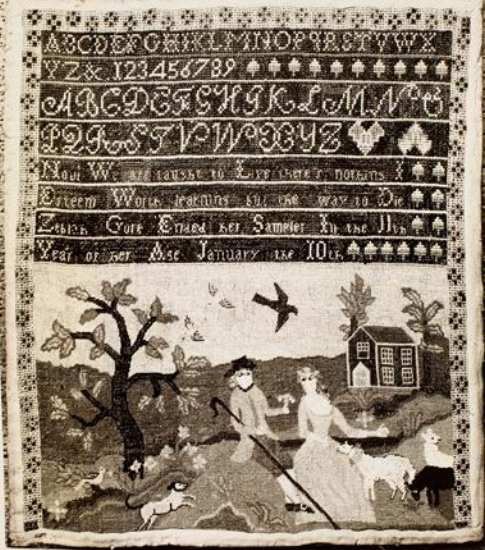 ABCDEFGHIKLMNOPQRSTVWX
YZ& 123456789
ABCDEFGHIKLMNO
PQRSTVWXYZ
Now We are taught to Live there's nothing I
Esteem Worth learning but the way to Die
Zebiah Gore Ended her Sampler In the 11th
Year of her Age January the 10th